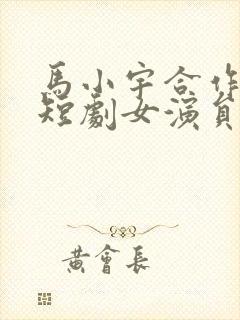 馬小宇合作
短劇女演員
黃會長